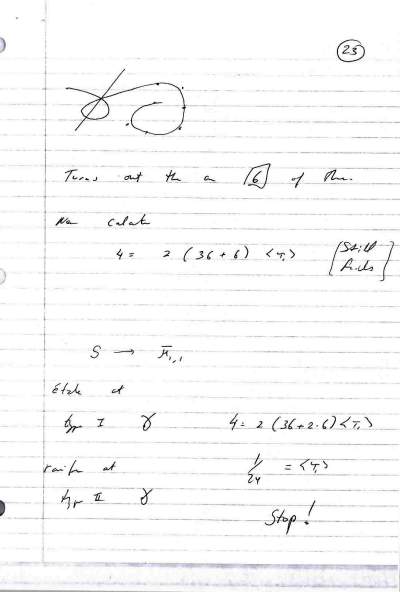 23
Turns out there are 6 of them.
Now calculate
4 = 2 (36 + 6) <τ₁> [Still fails]
S → M̅₁,₁
Etale at
type I γ 4 = 2 (36 + 2·6) <τ₁>
ramifies at 1/24 = <τ₁>
type II γ
Stop!